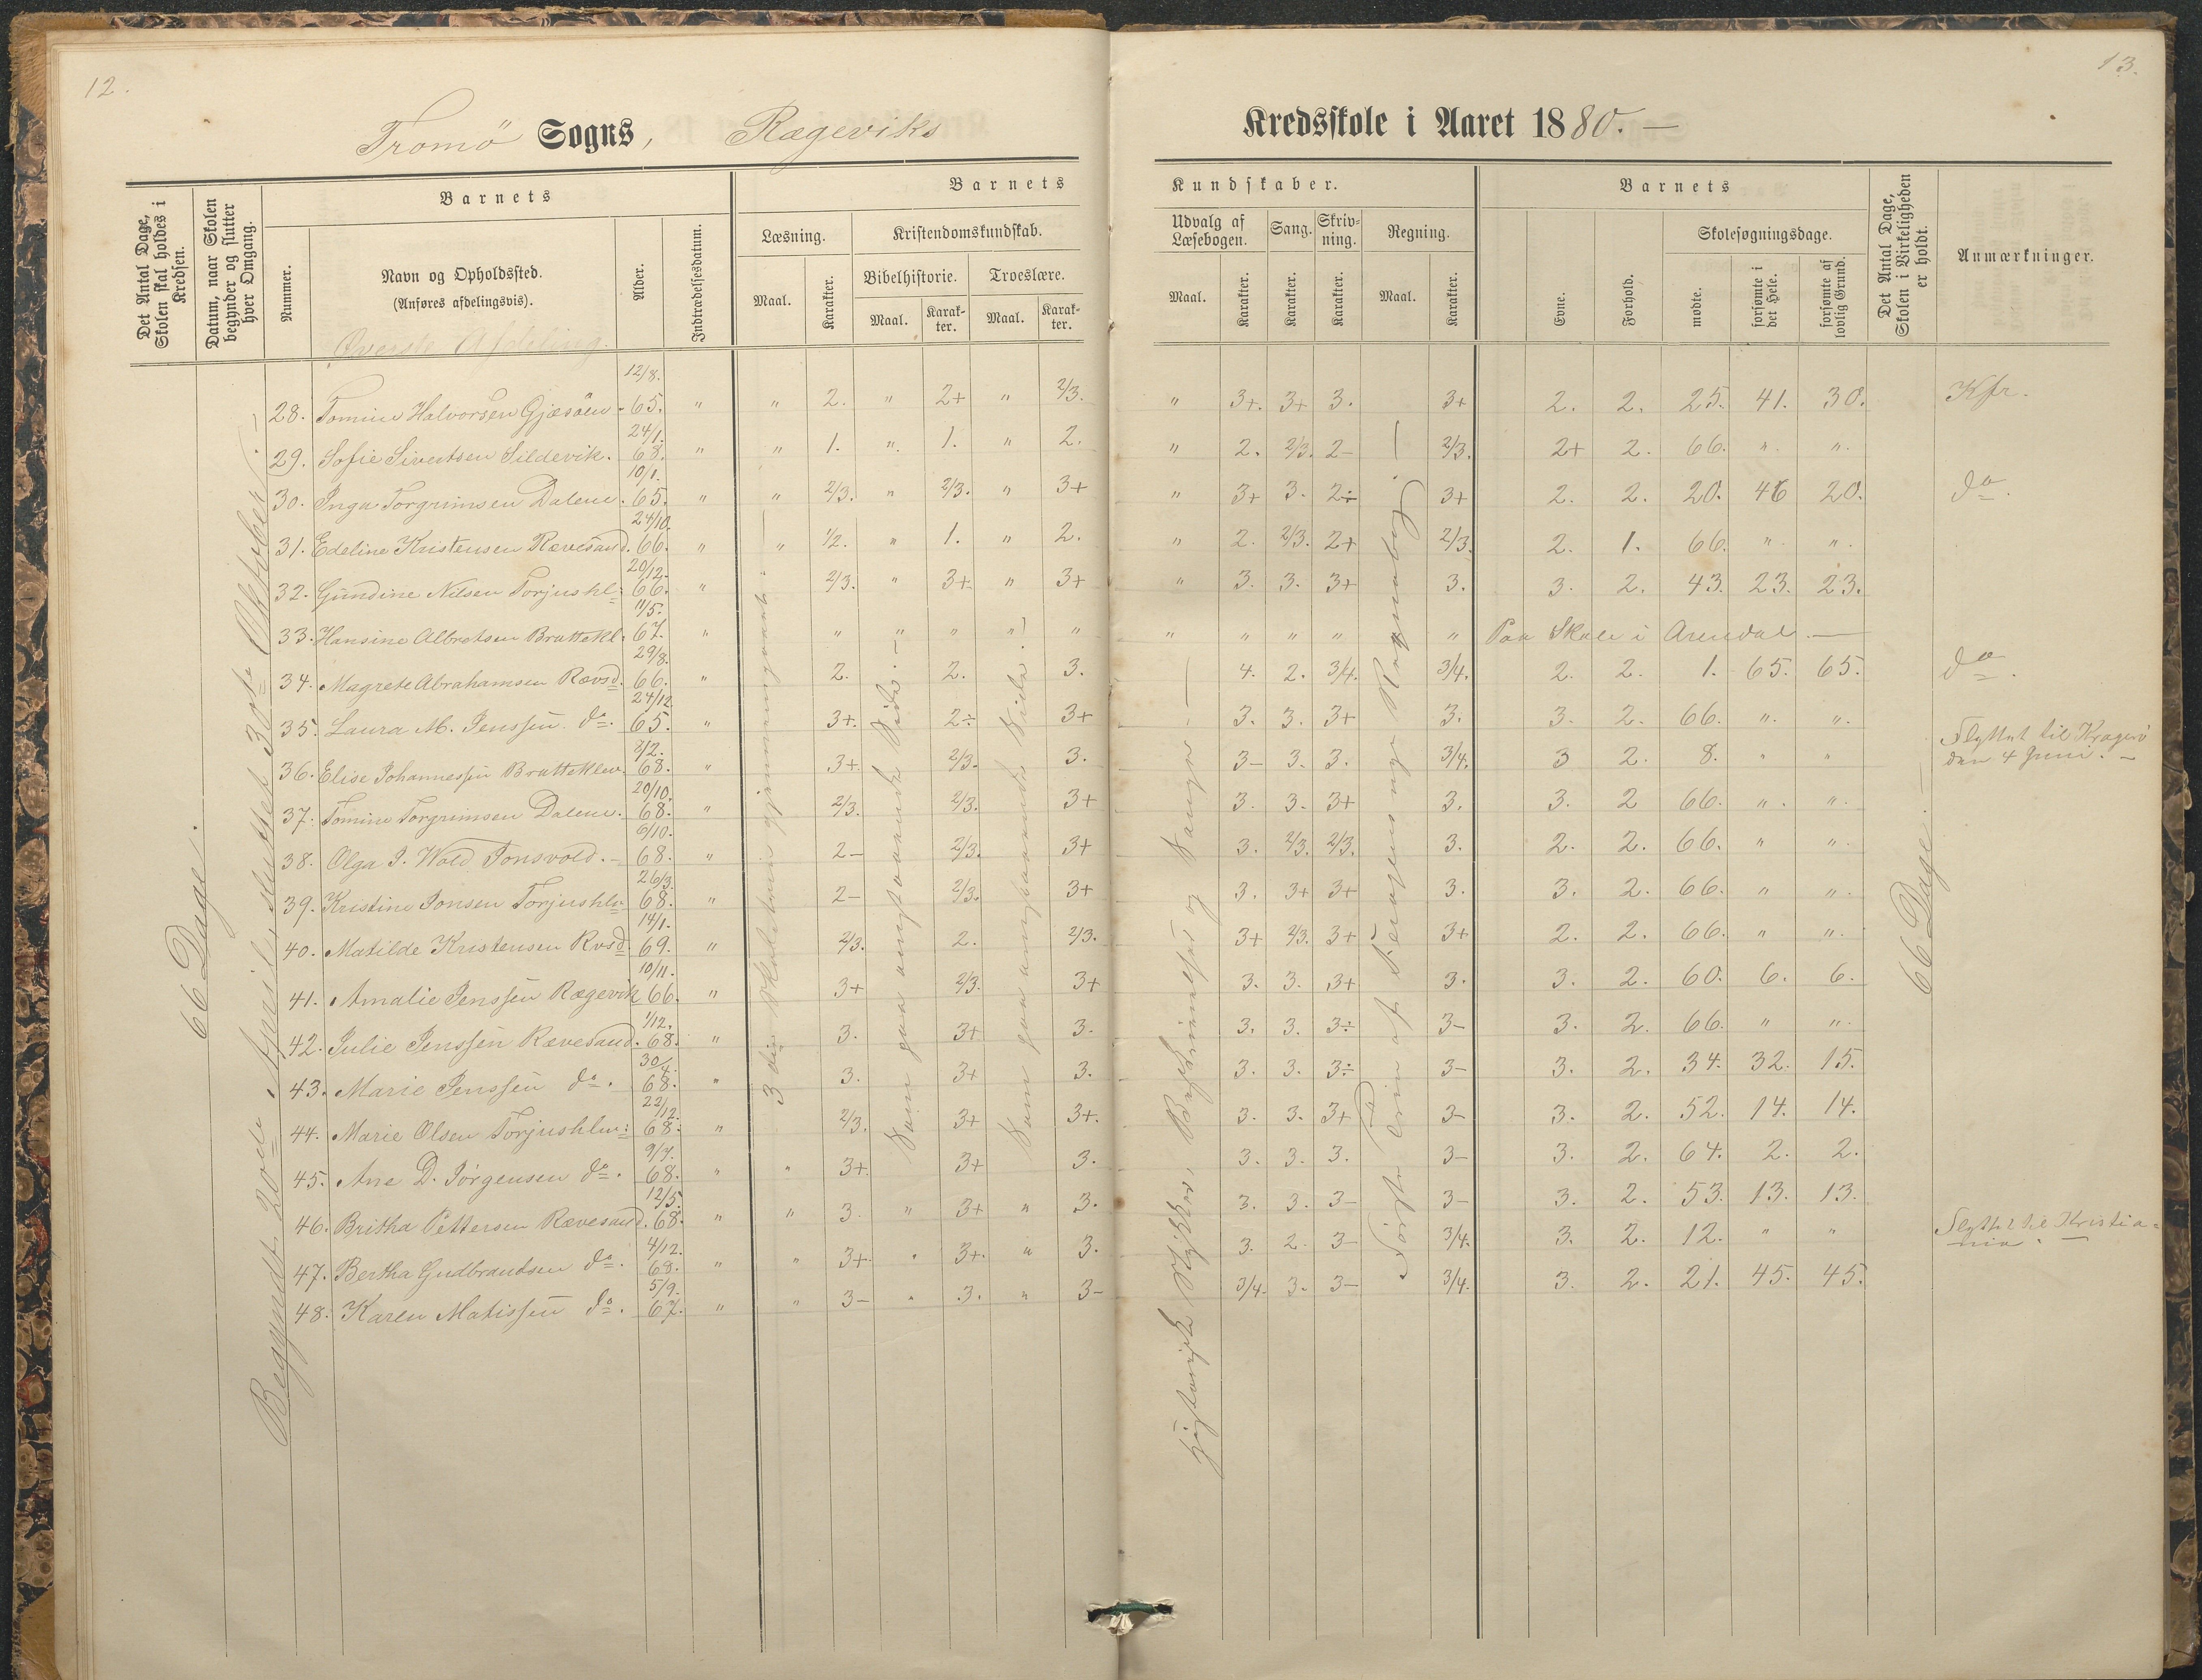 12.
13.
Tromö Sogns, Rægeviks
Kredsskole i Aaret 1880. —
Det Antal Dage, Skolen skal holdes i Kredsen.
Datum, naar Skolen begynder og slutter hver Omgang.
Barnets
Nummer.
Navn og Opholdssted.
(Anføres afdelingsvis).
Alder.
Indtrædelsesdatum.
Barnets
Læsning.
Maal.
Karakter.
Kristendomskundskab.
Bibelhistorie.
Maal.
Karakter.
Troeslære.
Maal.
Karakter.
Kundskaber.
Udvalg af Læsebogen.
Maal.
Karakter.
Sang.
Karakter.
Skrivning.
Karakter.
Regning.
Maal.
Karakter.
Barnets
Evne.
Forhold.
Skolesøgningsdage.
mødte.
forsømte i det Hele.
forsømte af lovlig Grund.
Det Antal Dage, Skolen i Virkeligheden er holdt.
Anmærkninger.
Øverste Afdeling.
28. Tomine Halvorsen Gjæsöen 12/8. 65. " " 2. " 2+ " 2/3. " 3+. 3+ 3. 3+ 2. 2. 25. 41. 30. Kfr.
29. Sofie Sivertsen Sildevik. 24/1. 68. " " 1. " 1. " 2. " 2. 2/3. 2– 2/3. 2+ 2. 66. " "
30. Inga Torgrimsen Dalene. 10/1. 65. " " 2/3. " 2/3. " 3+ " 3+ 3. 2÷ 3+ 2. 2. 20. 46 20. do.
31. Edeline Kristensen Rævesand. 24/10. 66. " " 1/2. " 1. " 2. " 2. 2/3. 2+ 2/3. 2. 1. 66. " "
32. Gundine Nilsen Torjushl: 20/12. 66. " 2/3. " 3+ " 3+ " 3. 3. 3+ 3. 3. 2. 43. 23. 23.
33. Hansine Albretsen Brattekl. 11/5. 67. " " " " " " " " " " " Paa Skole i Arendal —
34. Magrete Abrahamsen Rævsd. 29/8. 66. " 2. 2. 3. 4. 2. 3/4. 3/4. 2. 2. 1. 65. 65. do.
35. Laura M. Jenssen do. 24/12. 65. " 3+. 2÷ 3+ 3. 3. 3+ 3. 3. 2. 66. " "
36. Elise Johannessen Bratteklev. 8/2. 68. " 3+ 2/3. 3. 3– 3. 3. 3/4. 3 2. 8. " " Flyttet til Kragerö den 4 Juni. –
37. Tomine Torgrimsen Dalene. 20/10. 68. " 2/3. 2/3. 3+ 3. 3. 3+ 3. 3. 2 66. " "
38. Olga J. Wold Tonsvold. 6/10. 68. " 2– 2/3. 3+ 3. 2/3. 2/3. 3. 2. 2. 66. " "
39. Kristine Jonsen Torjushlv 26/3. 68. " 2– 2/3. 3+ 3. 3+ 3+ 3. 3. 2. 66. " "
40. Matilde Kristensen Rvsd. 14/1. 69. " 2/3. 2. 2/3. 3+ 2/3. 3+ 3+ 2. 2. 66. " "
41. Amalie Jenssen Rægevik 10/11. 66. " 3+ 2/3. 3+ 3. 3. 3+ 3. 3. 2. 60. 6. 6.
42. Julie Jenssen Rævesand. 1/12. 68. " 3. 3+ 3. 3. 3. 3÷ 3– 3. 2. 66. " "
43. Marie Jenssen do. 30/4. 68. " 3. 3+ 3. 3. 3. 3÷ 3– 3. 2. 34. 32. 15.
44. Marie Olsen Torjushlm: 22/12. 68. " 2/3. 3+ 3+. 3. 3. 3+ 3– 3. 2. 52. 14. 14.
45. Ane D. Jörgensen do. 9/7. 68. " " 3+ 3+ 3. 3. 3. 3. 3– 3. 2. 64. 2. 2.
46. Britha Pettersen Rævesand. 12/5. 68. " " 3. " 3+ " 3. 3. 3. 3– 3– 3. 2. 53. 13. 13.
47. Bertha Gudbrandsen do. 4/12. 68. " " 3+. " 3+. " 3. 3. 2. 3– 3/4. 3. 2. 12. " " Flyttet til Kristiania. —
48. Karen Matissen do. 5/9. 67. " " 3– " 3. " 3– 3/4. 3. 3– 3/4. 3. 2. 21. 45. 45.
66 Dage.
Begyndt 20de April, sluttet 30te Oktober. —
3die Skoletrin gjennemgaaet. —
Som paa angivaaende Side. —
Som paa Side.
historiske Stykker, Beskrivelser og Sange. —
Første Trin af Regnebog. —
66 Dage. —